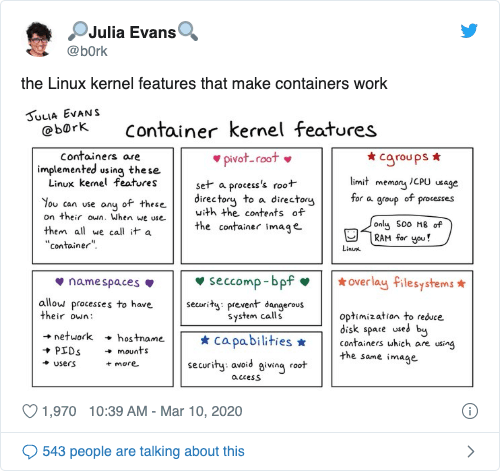 🔎Julia Evans🔍
@b0rk
the Linux kernel features that make containers work
JULIA EVANS
@b0rk
container kernel features
Containers are
implemented using these
Linux kernel features
You can use any of these
on their own. When we use
them all we call it a
"container".
♥ pivot_root ♥
set a process's root
directory to a directory
with the contents of
the container image
★ cgroups ★
limit memory/CPU usage
for a group of processes
only 500 MB of
RAM for you!
Linux
♥ namespaces ♥
allow processes to have
their own:
→ network → hostname
→ PIDs → mounts
→ users + more
♥ seccomp-bpf ♥
security: prevent dangerous
system calls
★ capabilities ★
security: avoid giving root
access
★ overlay filesystems ★
optimization to reduce
disk space used by
containers which are using
the same image
1,970 10:39 AM - Mar 10, 2020
543 people are talking about this